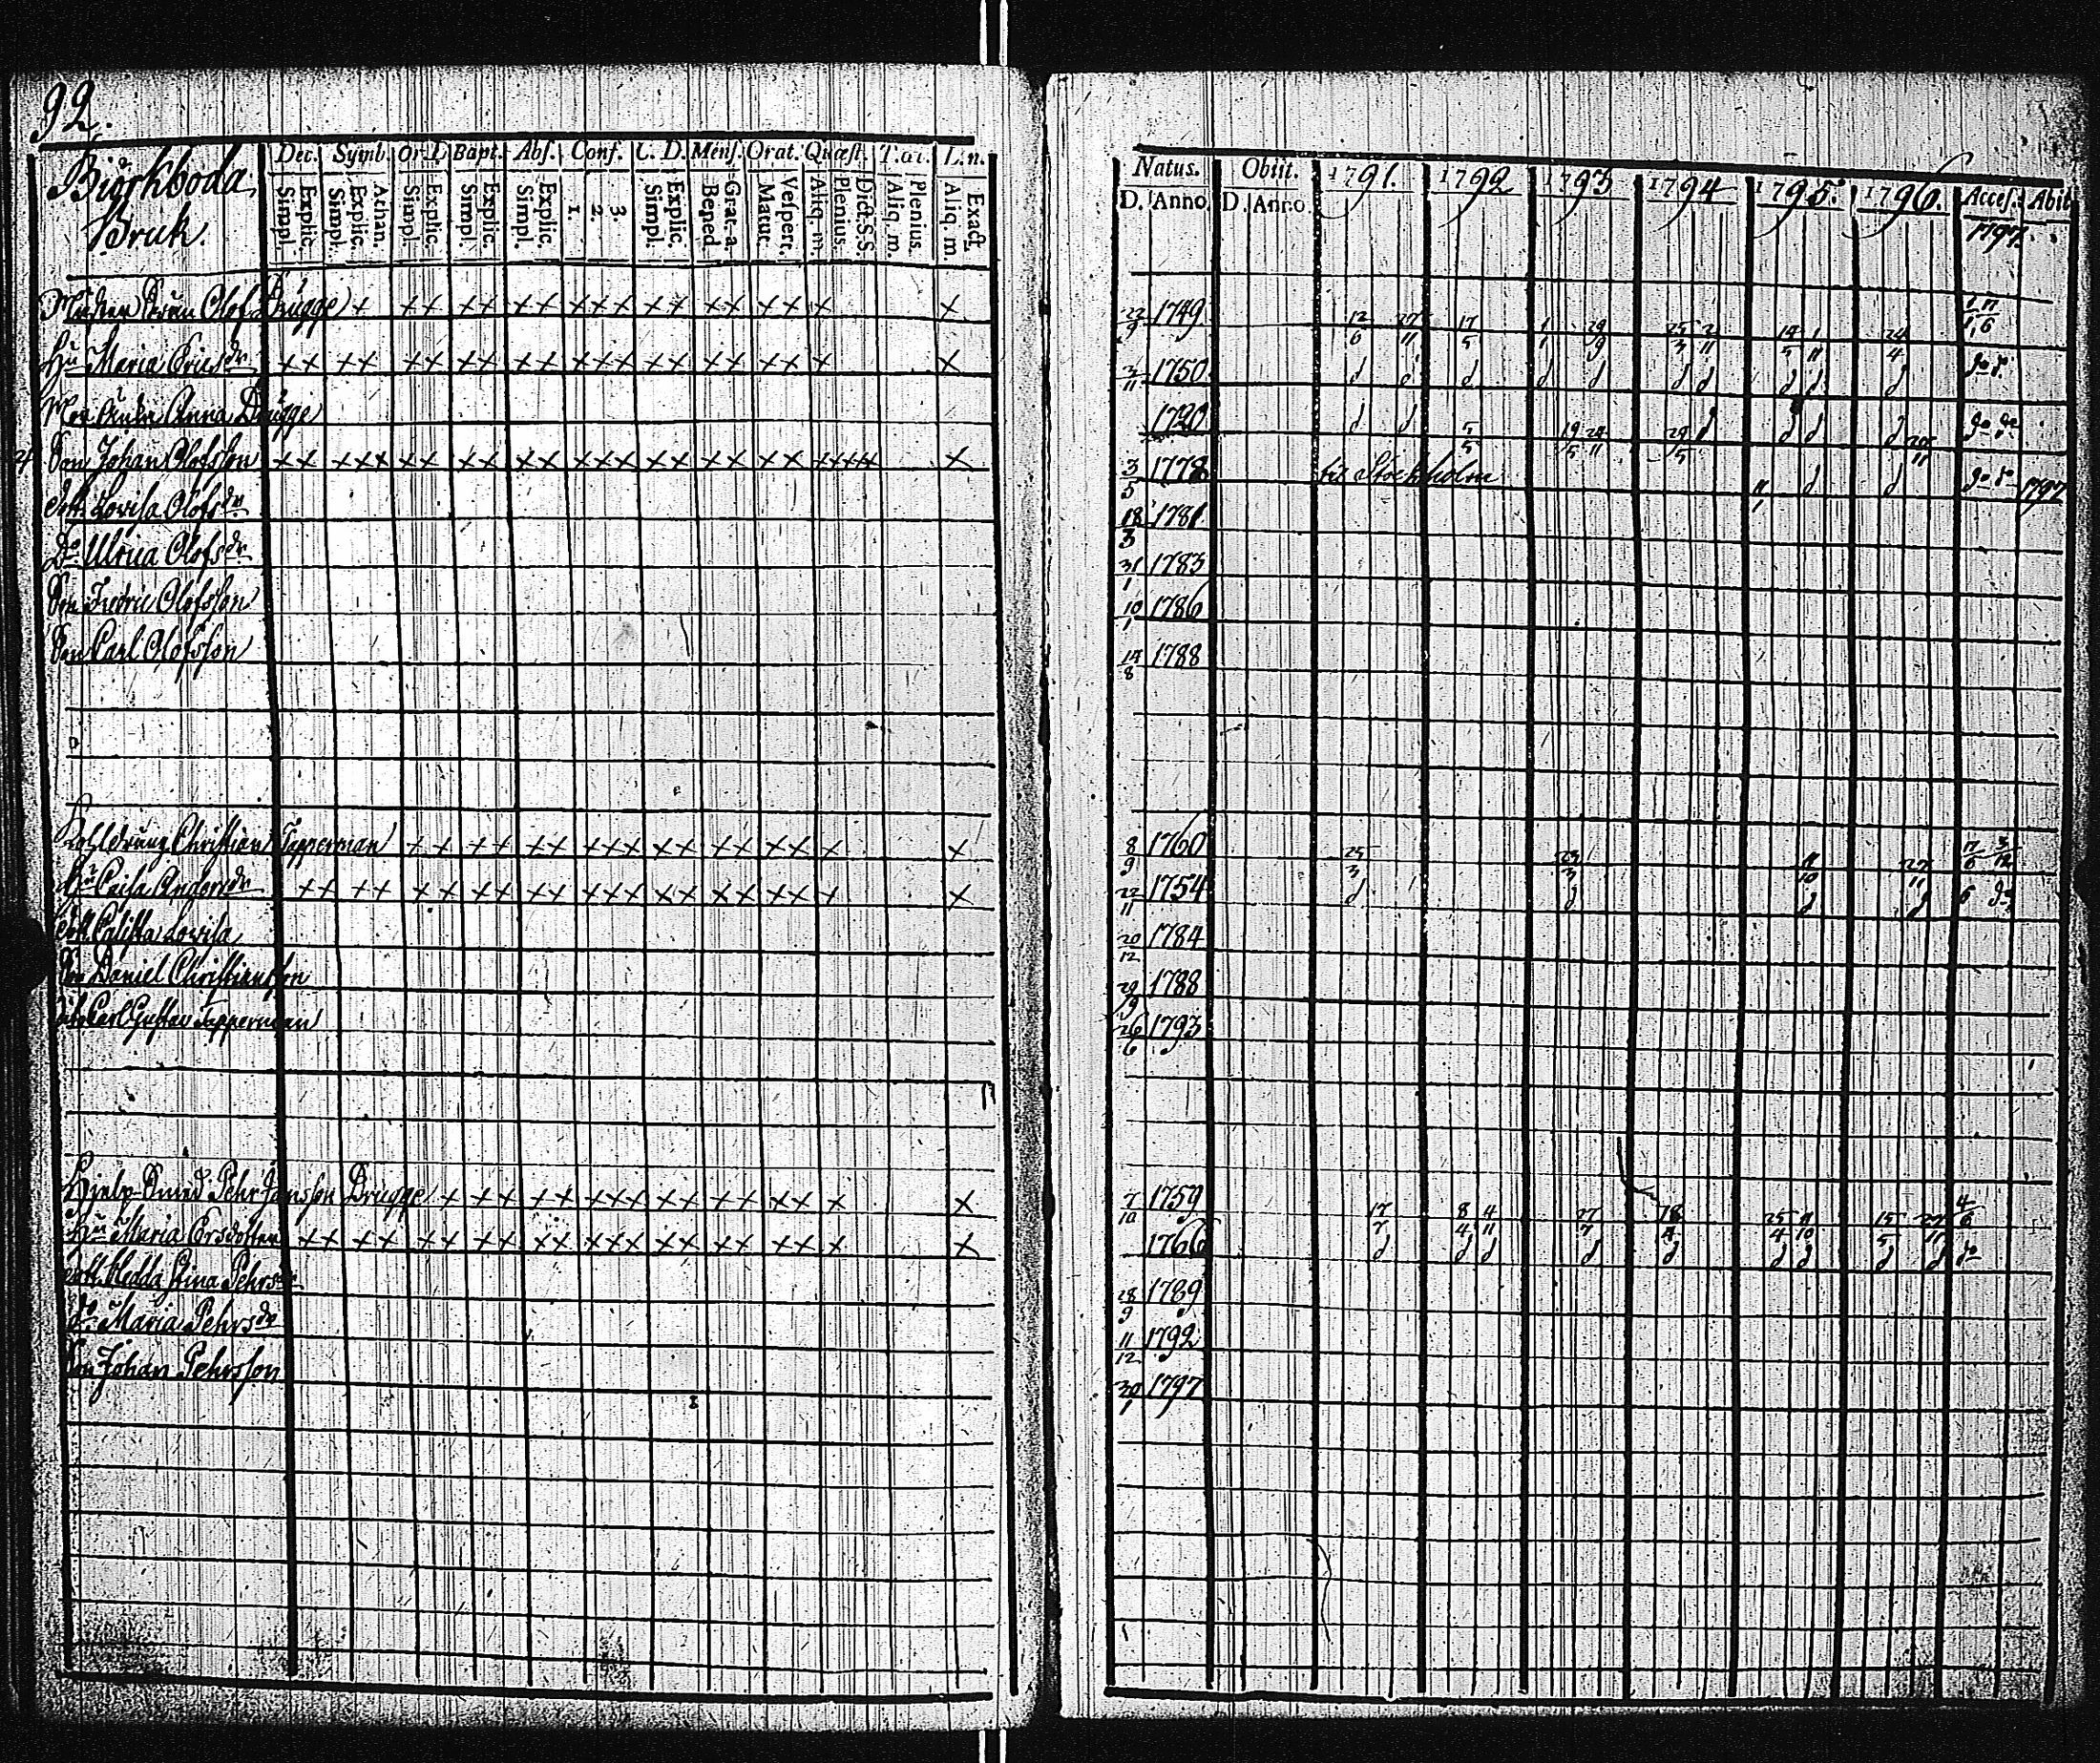 92.
Biörkboda
Bruk.
Dec. Symb. Or. D. Bapt. Abs. Conf. C. D. Mens. Orat. Quæst. T. œc. L. n.
Simpl. Explic. Simpl. Explic. Athan. Simpl. Explic. Simpl. Explic. Simpl. Explic. 1. 2. 3. Simpl. Explic. Bened. Grat. a. Matut. Vesper. Aliq. m. Plenius. Dict. S. S. Aliq. m. Plenius. Aliq. m. Exact
Natus. Obiit. 1791. 1792 1793 1794 1795. 1796. Acces. Abit
D. Anno. D. Anno. 1797
Olof Drugge + ++ ++ ++ +++ ++ ++ ++ + + 22/9 1749 12/6 27/11 17/5 1/1 29/9 25/3 2/11 14/5 1/11 24/4
Hu Maria ++ ++ ++ ++ ++ +++ ++ ++ ++ + + 3/11 1750 d d d d d d d d d d do do
Anna Drugge 1720 d d 5/5 19/5 24/11 29/5 d d d d 20/11 do do
Son Johan Olofsson ++ +++ ++ ++ ++ +++ ++ ++ ++ ++++ + 3/5 1778 til Stockholm 11/1 d d do do 1797
Dott. Lovisa Olofsdr 18/3 1781
Do Ulrica Olofsdr 31/1 1783
Son Fredric Olofsson 10/1 1786
Son Carl Olofsson 14/8 1788
Kohldräng Christian Tapperman ++ ++ ++ +++ ++ ++ ++ + + 8/9 1760 25/3 23/3 11/10 27/11 17/6 3/12
Hu Caisa Andersdr ++ ++ ++ ++ ++ +++ ++ ++ ++ + + 22/11 1754 d d d d 6 do
Dott. Calista Lovisa 20/12 1784
Son Daniel Christiansson 29/9 1788
Carl Gustav Tapperman 26/6 1793
Hjelp-Smed Pehr Jansson Drugge + ++ ++ +++ ++ ++ ++ + + 7/10 1759 17/7 8/4 4/11 27/7 18/4 25/4 11/10 15/5 27/11 4/6
Hu Maria Ersdotter ++ ++ ++ ++ ++ +++ ++ ++ ++ + + 1766 d d d d d d d d d do
Dott. Hedda Stina Pehrsdr 28/9 1789
Do Maria Pehrsdr 11/12 1792
Son Johan Pehrsson 30/1 1797